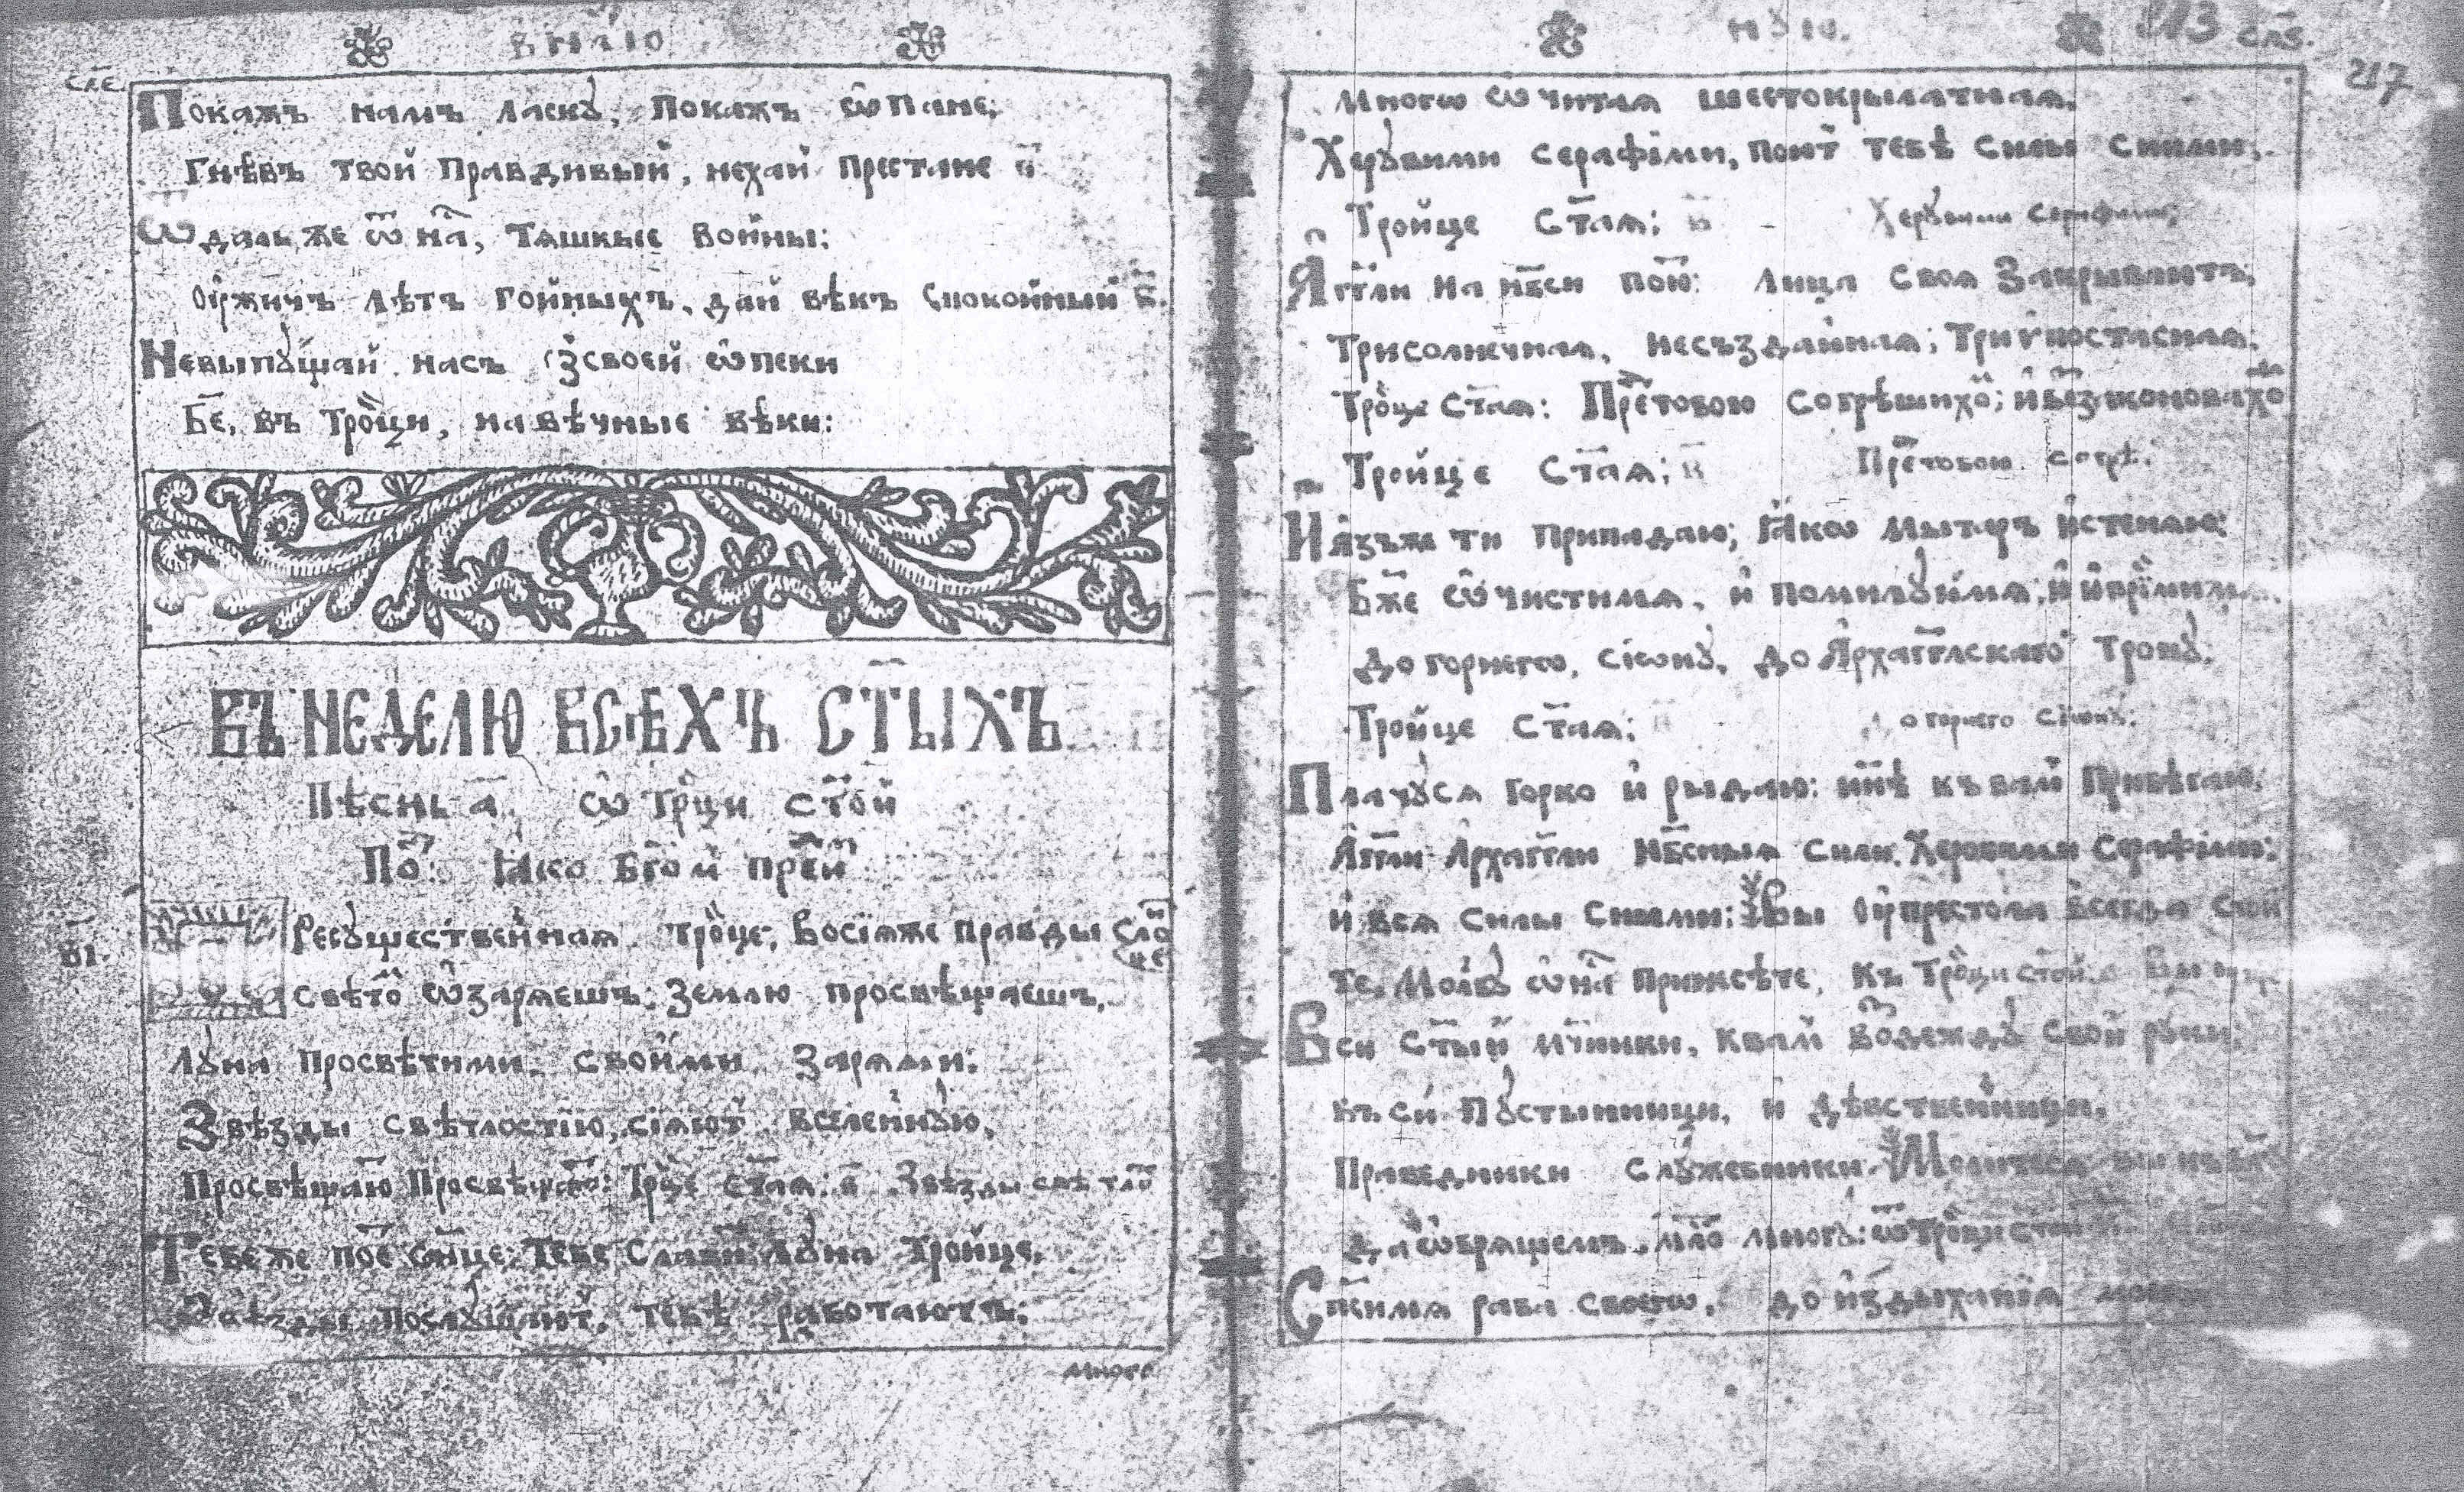 сле.
Покажъ намъ ласкꙋ, покажъ ѽ Пане;
Гнѣвъ твой правдивый, нехай престане
Ѿдаль же ѿ на, тяшкые войны:
Оужичъ лѣтъ гойныхъ, дай вѣкъ спокойный в҃.
Невыпꙋщай насъ зсвоей ѡпеки
Бе҃, въ Тройци, на вѣчные вѣки:
ВЪ НЕДЕЛЮ ВСѢХЪ СТ҃ЫХЪ
Пѣснь а҃ ѡ Трц҃и ст҃ой
По:
в҃і.
Ресꙋщественная Тройце, восіяже правды Слонце
Свѣто ѡзаряешъ: Землю просвѣщаешъ,
Лꙋни просвѣтими своими зарями:
Звѣзды свѣтлостїю, сіяют вселеннꙋю,
Просвѣщаю Просвѣщаю: Трц҃е ст҃ая: в҃ Звѣзды свѣтло
Тебеже пое Сл҃нце: Тебе Слави Лꙋна Тройце,
Звѣзды послꙋшают, тебѣ работаютъ:
Много
213 слѕ.
217
Многоѡчитая шестокрылатная,
Херꙋвими серафіми, поют тебѣ силы сними,
Тройце Ст҃ая; в҃ Херꙋвими серафими;
Аг҃гли на нб҃си пою: Лица своя закрываютъ,
Трисолнечная, несъзданная; Триѵпостасная.
Тройце Ст҃ая: Пре тобою согрѣшихо; и беззаконовахо
Тройце Ст҃ая; в҃ Пре тобою согрѣ.
И азъже ти припадаю; Ꙗкѡ мытаръ истенаю;
Бж҃е ѡчистимя, и помилꙋймя; и
до горнегѡ, Сіѡнꙋ, до Архаг҃глскаго Тронꙋ;
Тройце Ст҃ая; о горнего Сіѡнꙋ;
Плачꙋся горко и рыдаю: нн҃ѣ къ вам прибѣгаю,
Аг҃гли Архаг҃гли Нб҃сныя Сили, Херовими Серафіми;
и вся силы сними; Вы оу престола всегда стои
те, Молбꙋ ѡ на принесѣте, къ Тройци стой
Вси Ст҃ый мч҃ники, к вам воздеждꙋ свои рꙋки;
въси Пꙋстынници, и дѣвственници,
Праведники слꙋжебники. Молитеся
да ѡбрящемъ, мл҃о многꙋ: ѿ Тройци стои
Сп҃симя раба своегѡ, до издыханія моего